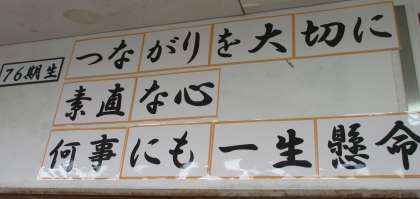 76期生
つながりを大切に
素直な心
何事にも一生懸命